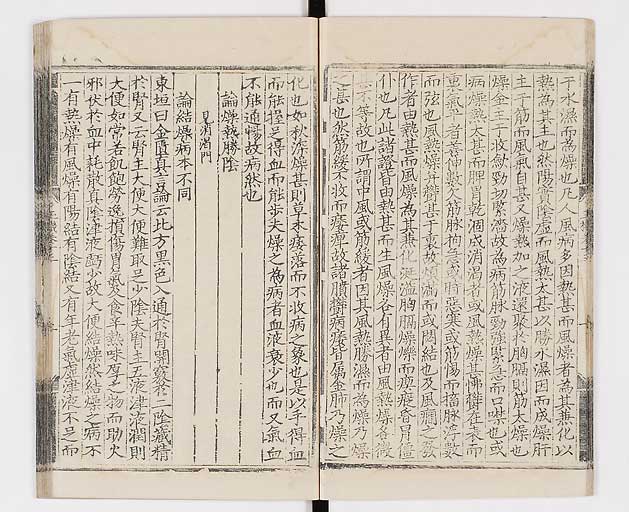 于水濕而為燥也乃人風病多因熱甚而風燥者為其兼化以
熱為其主也然陽實陰虛而風熱太甚以勝水濕因而成燥肝
主于筋而風氣自甚又燥熱加之液還聚於胸膈則筋太燥也
燥金主于收斂勁切緊澁故為病筋脉勁強緊急而口噤也或
病燥熱太甚而脾胃乾涸成消渴者或風熱燥甚怫鬱在表而
裏氣平者善伸數欠筋脉拘急或時惡寒或筋惕而搐脉浮數
而弦也風熱燥并鬱甚于裏故煩滿而或閟結也及風癎之發
作者由熱甚而風燥為其兼化涎溢胸膈燥爍而瘈瘲昏冒僵
仆也乃此諸證皆由熱甚而生風燥各有異者由風熱燥各微
甚不等故也所謂中風或筋緩者因其風熱勝濕而為燥乃燥
之甚也然筋緩不收而痿痺故諸膹鬱病痿皆屬金肺乃燥之
化也如秋深燥甚則草木痿落而不收病之象也是以手得血
而能握足得血而能步夫燥之為病者血液衰少也而又氣血
不能通暢故病然也
論燥熱勝陰
見消渴門
論結燥病本不同
東垣曰金匱真言論云北方黑色入通於腎開竅於二陰藏精
於腎又云腎主大便大便難取足少陰夫腎主五液津液潤則
大便如常若飢飽勞逸損傷胃氣及食辛熱味厚之物而助火
邪伏於血中耗散真陰津液虧少故大便結燥然結燥之病不
一有熱燥有風燥有陽結有陰結又有年老氣虛津液不足而